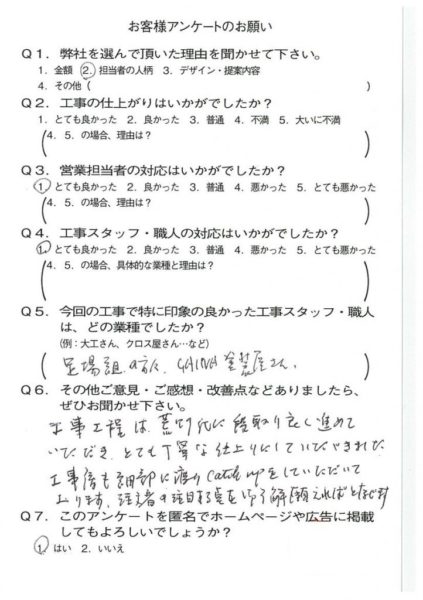 お客様アンケートのお願い
Q1. 弊社を選んで頂いた理由を聞かせて下さい。
1. 金額 2. 担当者の人柄 3. デザイン・提案内容
4. その他( )
Q2. 工事の仕上がりはいかがでしたか?
1. とても良かった 2. 良かった 3. 普通 4. 不満 5. 大いに不満
(4. 5. の場合、理由は? )
Q3. 営業担当者の対応はいかがでしたか?
1. とても良かった 2. 良かった 3. 普通 4. 悪かった 5. とても悪かった
(4. 5. の場合、理由は? )
Q4. 工事スタッフ・職人の対応はいかがでしたか?
1. とても良かった 2. 良かった 3. 普通 4. 悪かった 5. とても悪かった
(4. 5. の場合、具体的な業種と理由は? )
Q5. 今回の工事で特に印象の良かった工事スタッフ・職人
は、どの業種でしたか?
(例:大工さん、クロス屋さん…など)
足場組の方に、 屋さん、
Q6. その他ご意見・ご感想・改善点などありましたら、
ぜひお聞かせ下さい。
工事工程は 段取り良く進めて
いただき、とても丁寧な仕上りにしていただきました。
工事後も細部に渡り Catch up をしていただいて
おります。
Q7. このアンケートを匿名でホームページや広告に掲載
してもよろしいでしょうか?
1. はい 2. いいえ